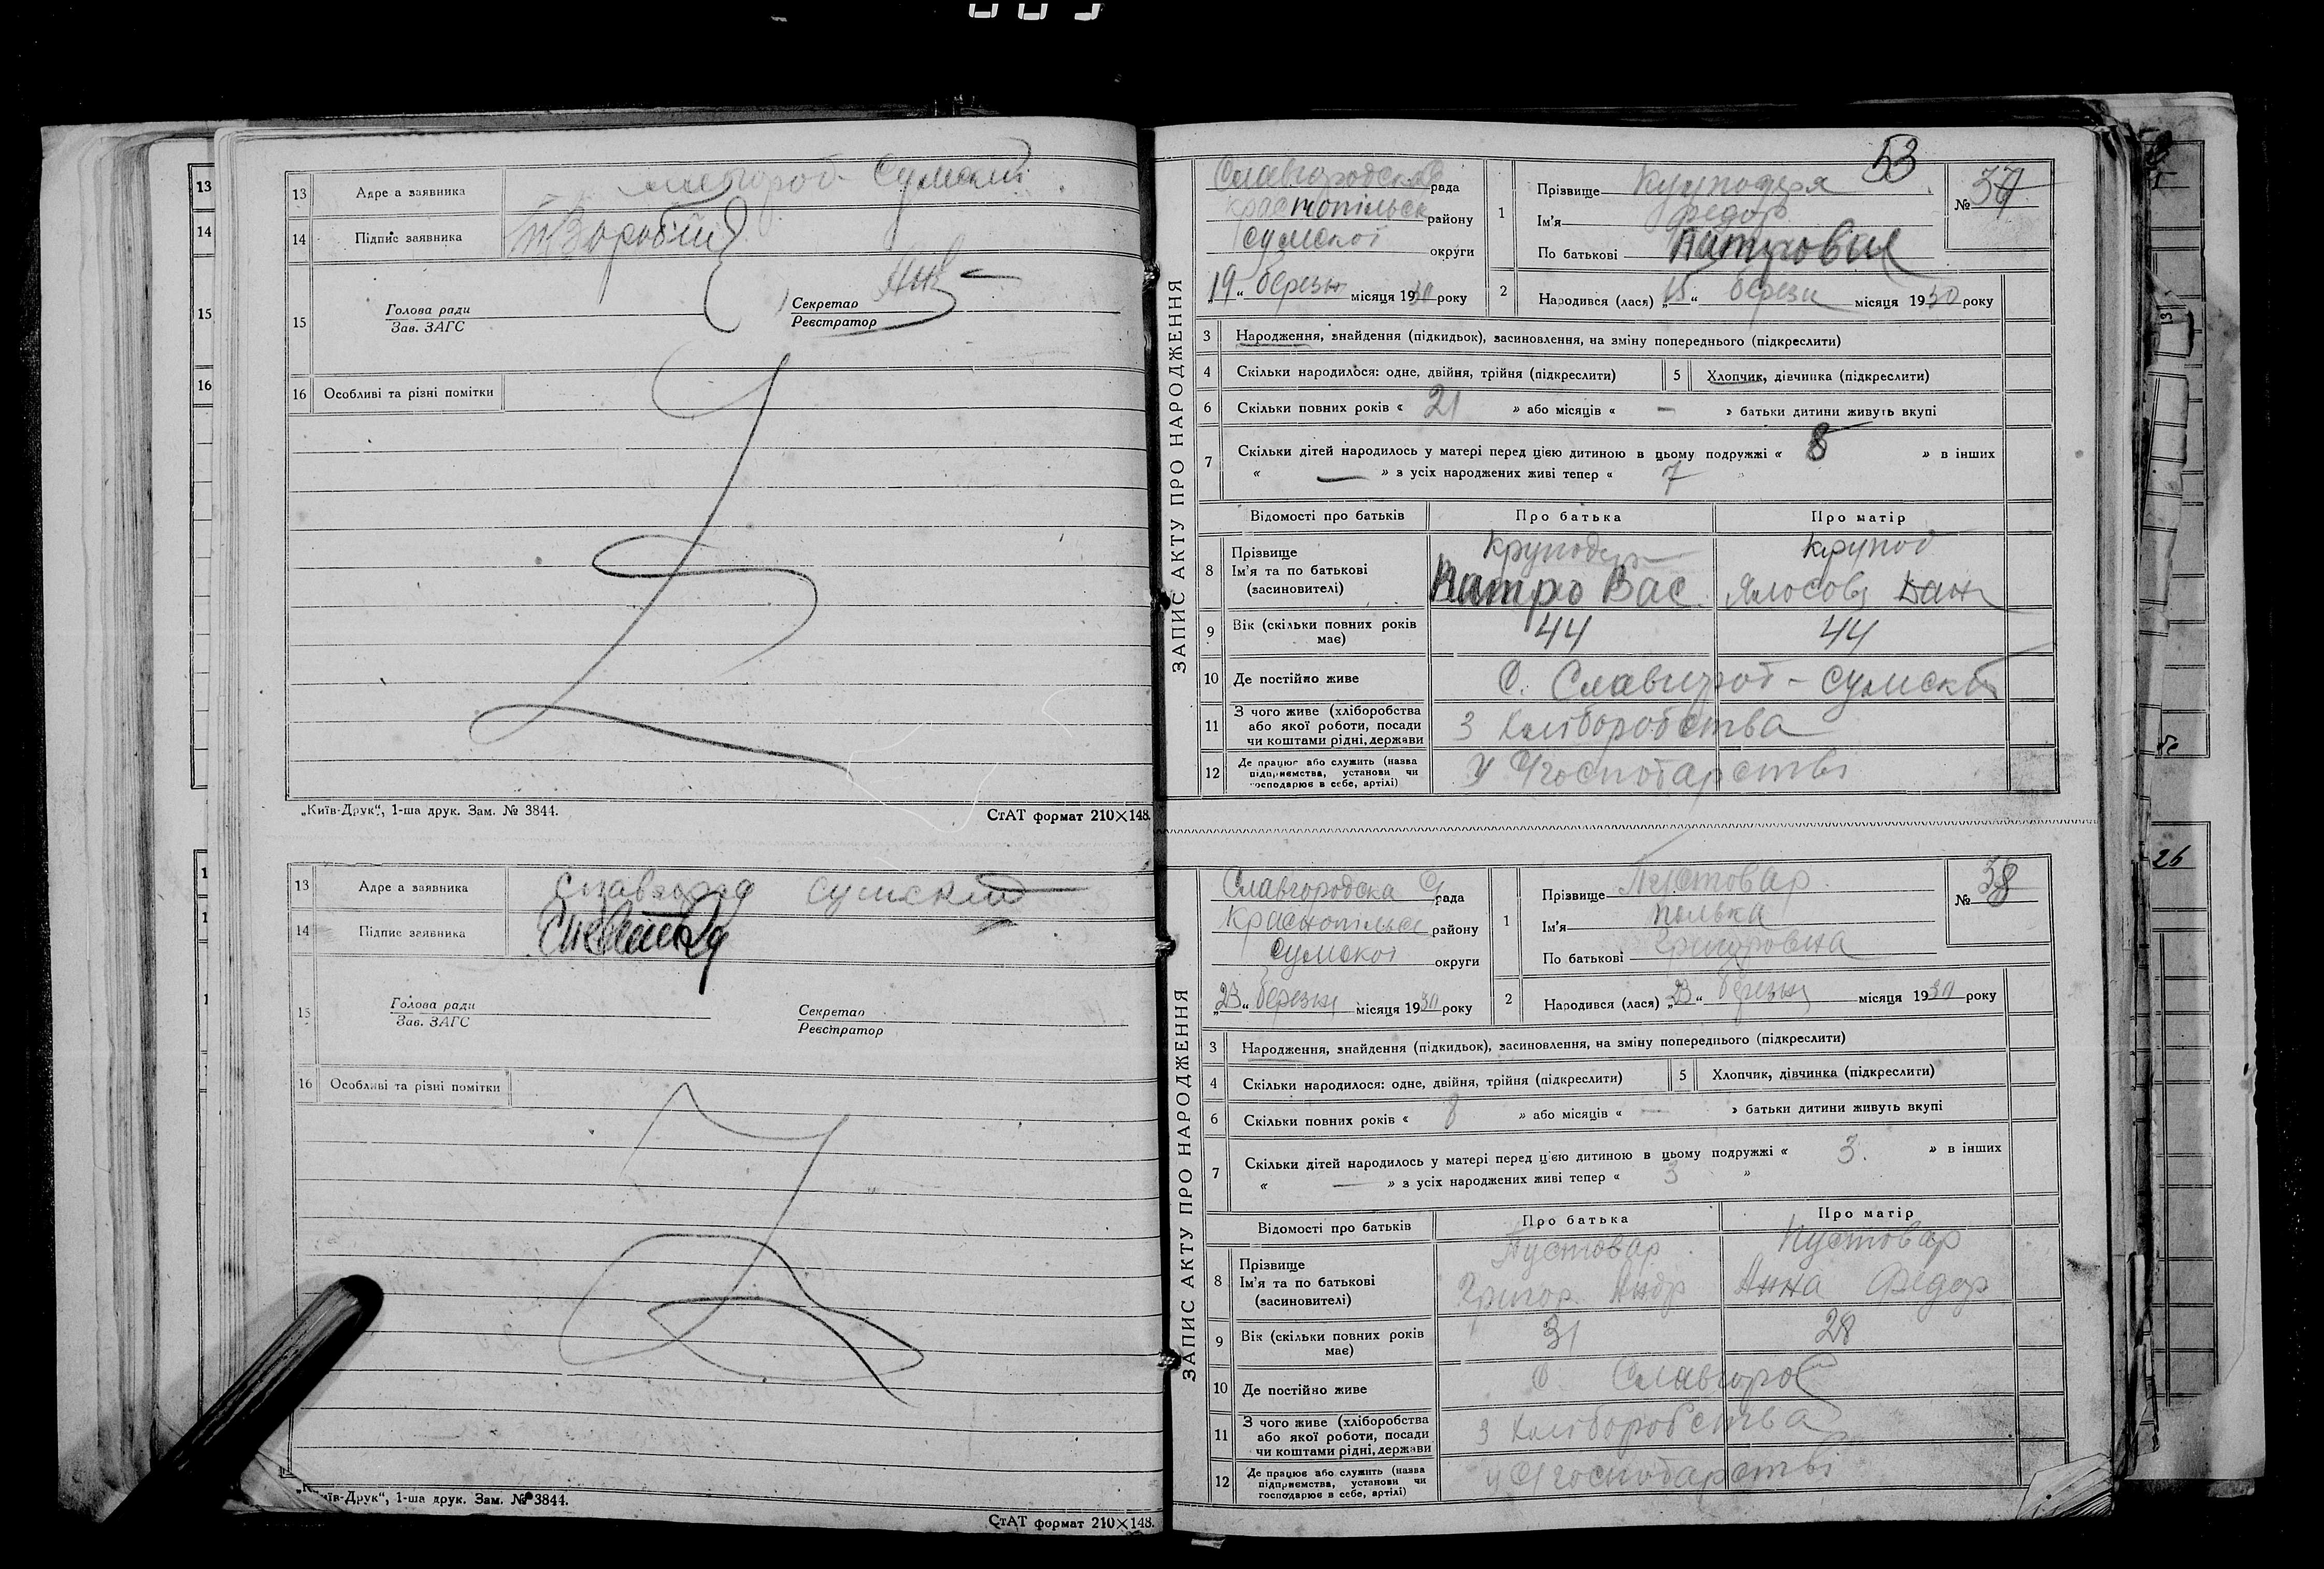 13 Адре а заявника Сумский
14 Підпис заявника
15 Голова ради
Зав. ЗАГС
Секретар
Реєстратор
16 Особливі та різні помітки
„Київ-Друк“, 1-ша друк. Зам. № 3844.
СтАТ формат 210×148.
13 Адре а заявника Славгород сумский
14 Підпис заявника
15 Голова ради
Зав. ЗАГС
Секретар
Реєстратор
16 Особливі та різні помітки
„Київ-Друк“, 1-ша друк. Зам. № 3844.
СтАТ формат 210×148.
53
ЗАПИС АКТУ ПРО НАРОДЖЕННЯ
Славгородська рада
Краснопільськ району
Сумської округи
„19“ березн місяця 1930 року
1 Прізвище
Ім'я Федор
По батькові
№ 37
2 Народився (лася) „15“ березн місяця 1930 року
3 Народження, знайдення (підкидьок), засиновлення, на зміну попереднього (підкреслити)
4 Скільки народилося: одне, двійня, трійня (підкреслити) 5 Хлопчик, дівчинка (підкреслити)
6 Скільки повних років « 21 » або місяців « — » батьки дитини живуть вкупі
7 Скільки дітей народилось у матері перед цією дитиною в цьому подружжі « 8 » в інших
« — » з усіх народжених живі тепер « 7 »
Відомості про батьків Про батька Про матір
8 Прізвище
Ім'я та по батькові
(засиновителі)
Круподер Крупод
Вас.
9 Вік (скільки повних років має) 44 44
10 Де постійно живе С. Славгород - Сумский
11 З чого живе (хліборобства
або якої роботи, посади
чи коштами рідні, держави
З хліборобства
12 Де працює або служить (назва
підприємства, установи чи
господарює в себе, артілі)
у С/господарстві
ЗАПИС АКТУ ПРО НАРОДЖЕННЯ
Славгородска С/рада
Краснопільск району
Сумської округи
„23“ березня місяця 1930 року
1 Прізвище Пустовар
Ім'я
По батькові Григоровна
№ 38
2 Народився (лася) „23“ березня місяця 1930 року
3 Народження, знайдення (підкидьок), засиновлення, на зміну попереднього (підкреслити)
4 Скільки народилося: одне, двійня, трійня (підкреслити) 5 Хлопчик, дівчинка (підкреслити)
6 Скільки повних років « 8 » або місяців « — » батьки дитини живуть вкупі
7 Скільки дітей народилось у матері перед цією дитиною в цьому подружжі « 3. » в інших
« — » з усіх народжених живі тепер « 3 »
Відомості про батьків Про батька Про матір
8 Прізвище
Ім'я та по батькові
(засиновителі)
Пустовар Пустовар
Григор Андр Анна Федор
9 Вік (скільки повних років має) 31 28
10 Де постійно живе С. Славгород
11 З чого живе (хліборобства
або якої роботи, посади
чи коштами рідні, держави
З хліборобства
12 Де працює або служить (назва
підприємства, установи чи
господарює в себе, артілі)
у С/господарстві